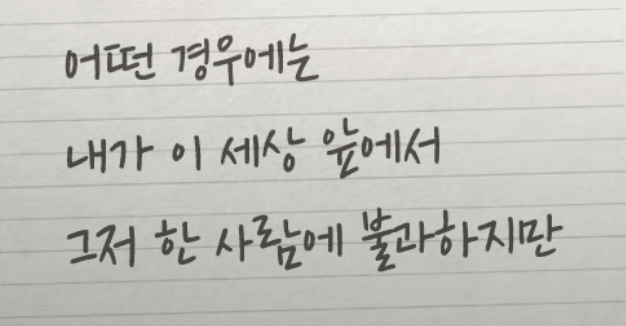 어떤 경우에는
내가 이 세상 앞에서
그저 한 사람에 불과하지만